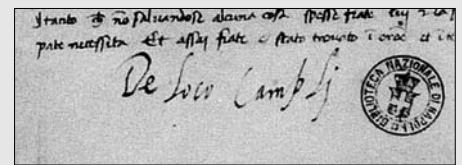 Jtanto no saluandose alcuna cosa spesse fiate
necessita Et assaj fiate e stato trouato ĩ et
De Loco Campli
BIBLIOTECA NAZIONALE DI NAPOLI